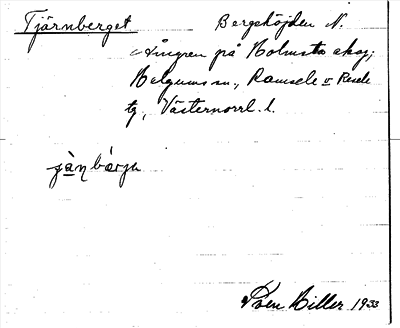 Tjärnberget Bergshöjden N.
Ången på Holmsta skog,
Helgums sn., Ramsele o Resele
tg, Västernorrl. l.
Sven Hiller 1933